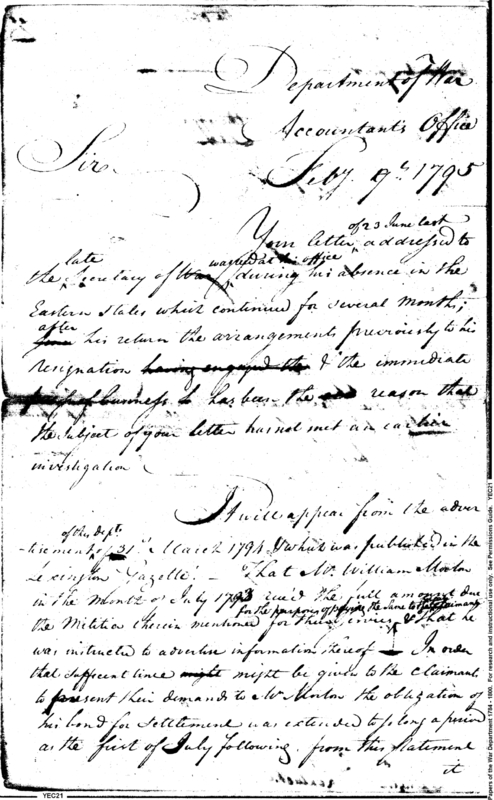 Department of War
Accountant's Office
Sir. Feby. 9th 1795
of 23 June last
Your letter addressed to
late was recd at this office
the Secretary of War during his absence in the
Eastern States which continued for several months;
after
his return the arrangements previously to his
resignation having engaged the & the immediate
press of business has been the reason that
the subject of your letter has not met an earlier
investigation
It will appear from the adver
of the dept.
-tisement of 31st March 1794 & which was published in the
Lexington Gazette. That Mr. William Morton
in the month of July 1793 recd the full amount due
for the purpose of paying the same to the
the Militia therein mentioned for their services & that he
was instructed to advertise information thereof In order
that sufficient time might might be given to the claimants
to present their demands to Mr Morton the obligation of
his bond for settlement was extended to so long a period
as the first of July following. from this statement
it
YEC21
Papers of the War Department 1784 - 1 For research and instructional use only. See Permissions Guide. YEC21